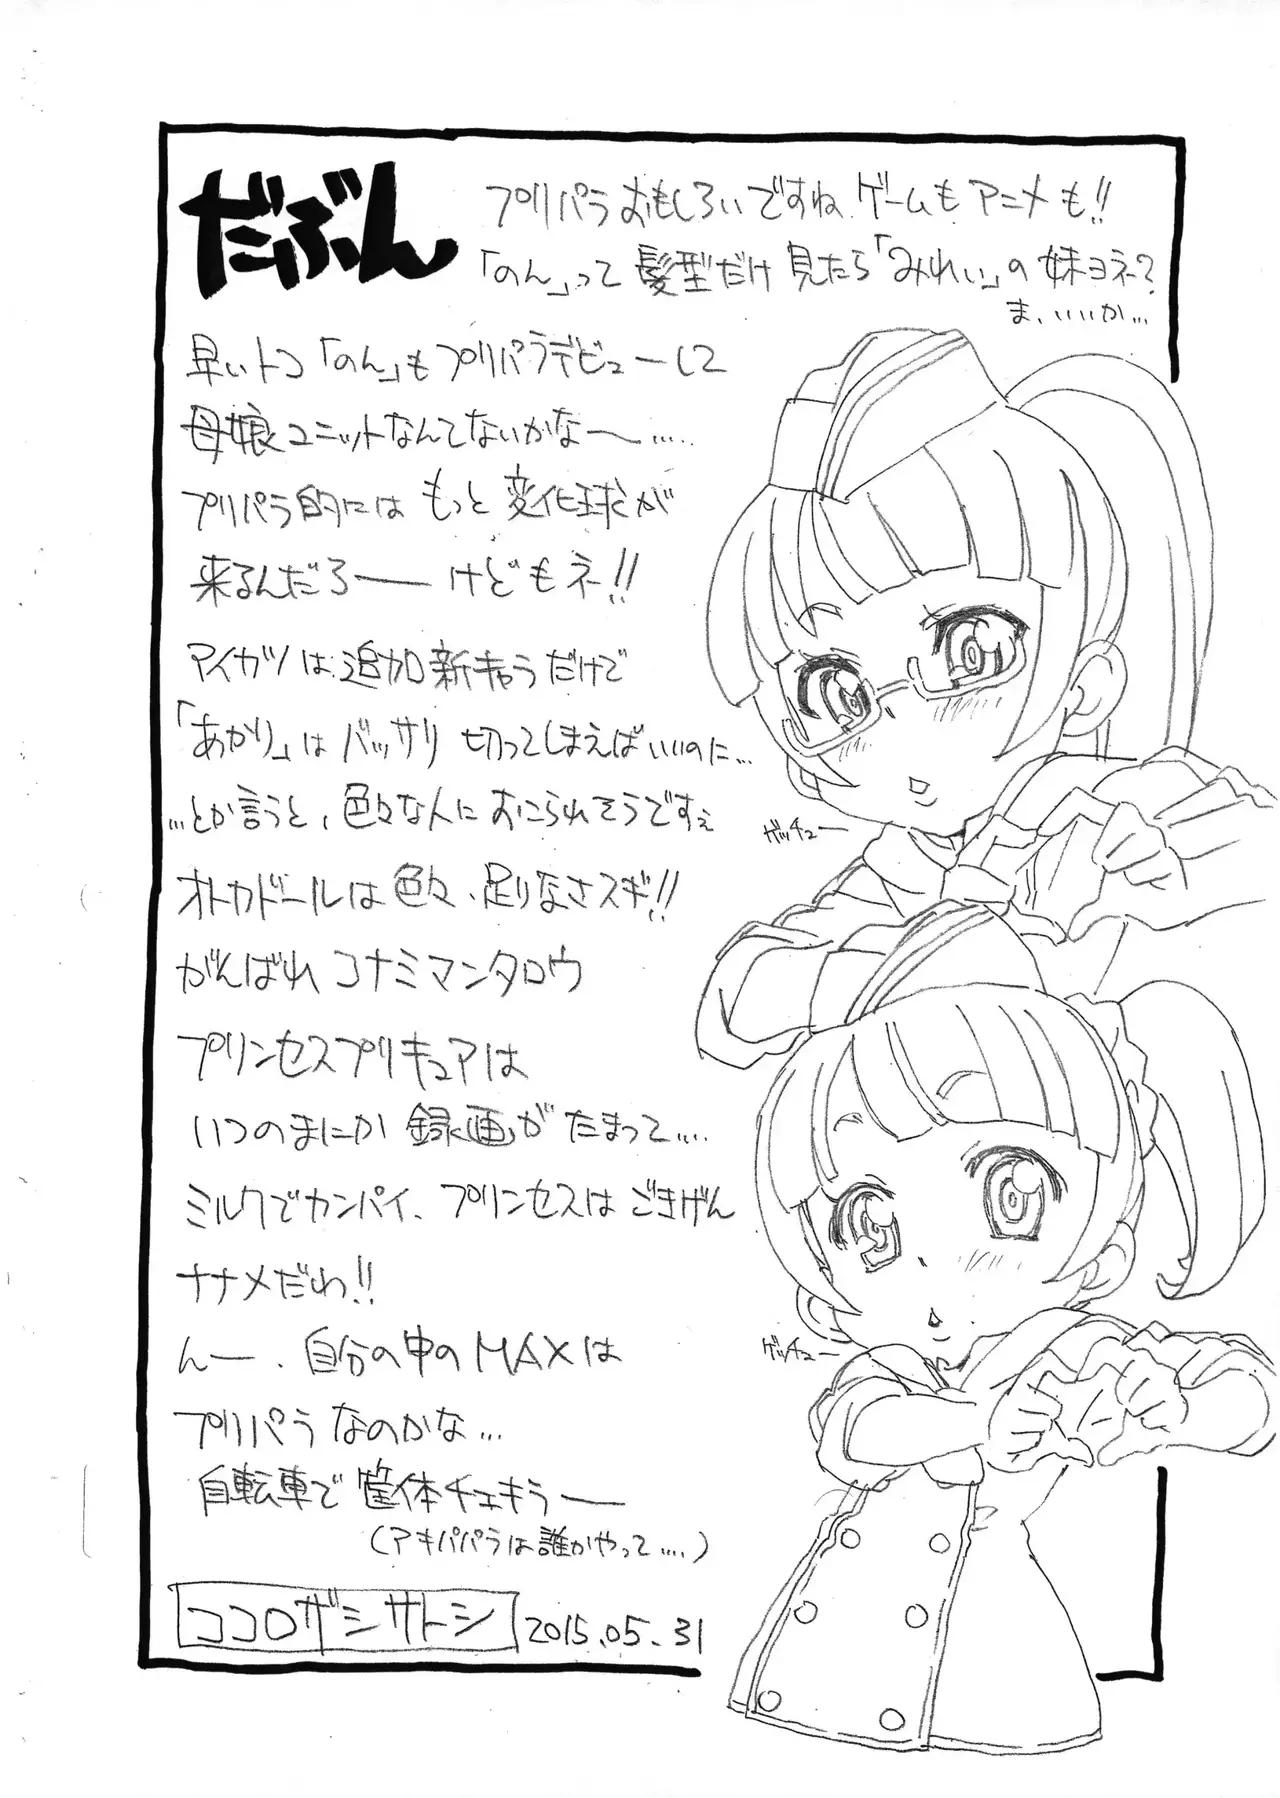 だぶん
プリパラおもしろいですね、ゲームもアニメも!!
「のん」って髪型だけ見たら「みれぃ」の妹ヨネ?
ま、いいか…
早いトコ「のん」もプリパラデビューして
母娘ユニットなんてないかな〜……
プリパラ的にはもっと変化球が
来るんだろーーけどもネー!!
アイカツは追加新キャラだけで
「あかり」はバッサリ切ってしまえばいいのに…
…とか言うと、色々な人におこられそうですぇ
オトカドールは色々、足りなさスギ!!
がんばれコナミマンタロウ
プリンセスプリキュアは
いつのまにか録画がたまって….
ミルクでカンパイ、プリンセスはごきげん
ナナメだわ!!
んー、自分の中のMAXは
プリパラなのかな…
自転車で筐体チェキラー
(アキパパラは誰かやって….)
ココロザシサトシ 2015.05.31
ゲッチュー
ゲッチュー